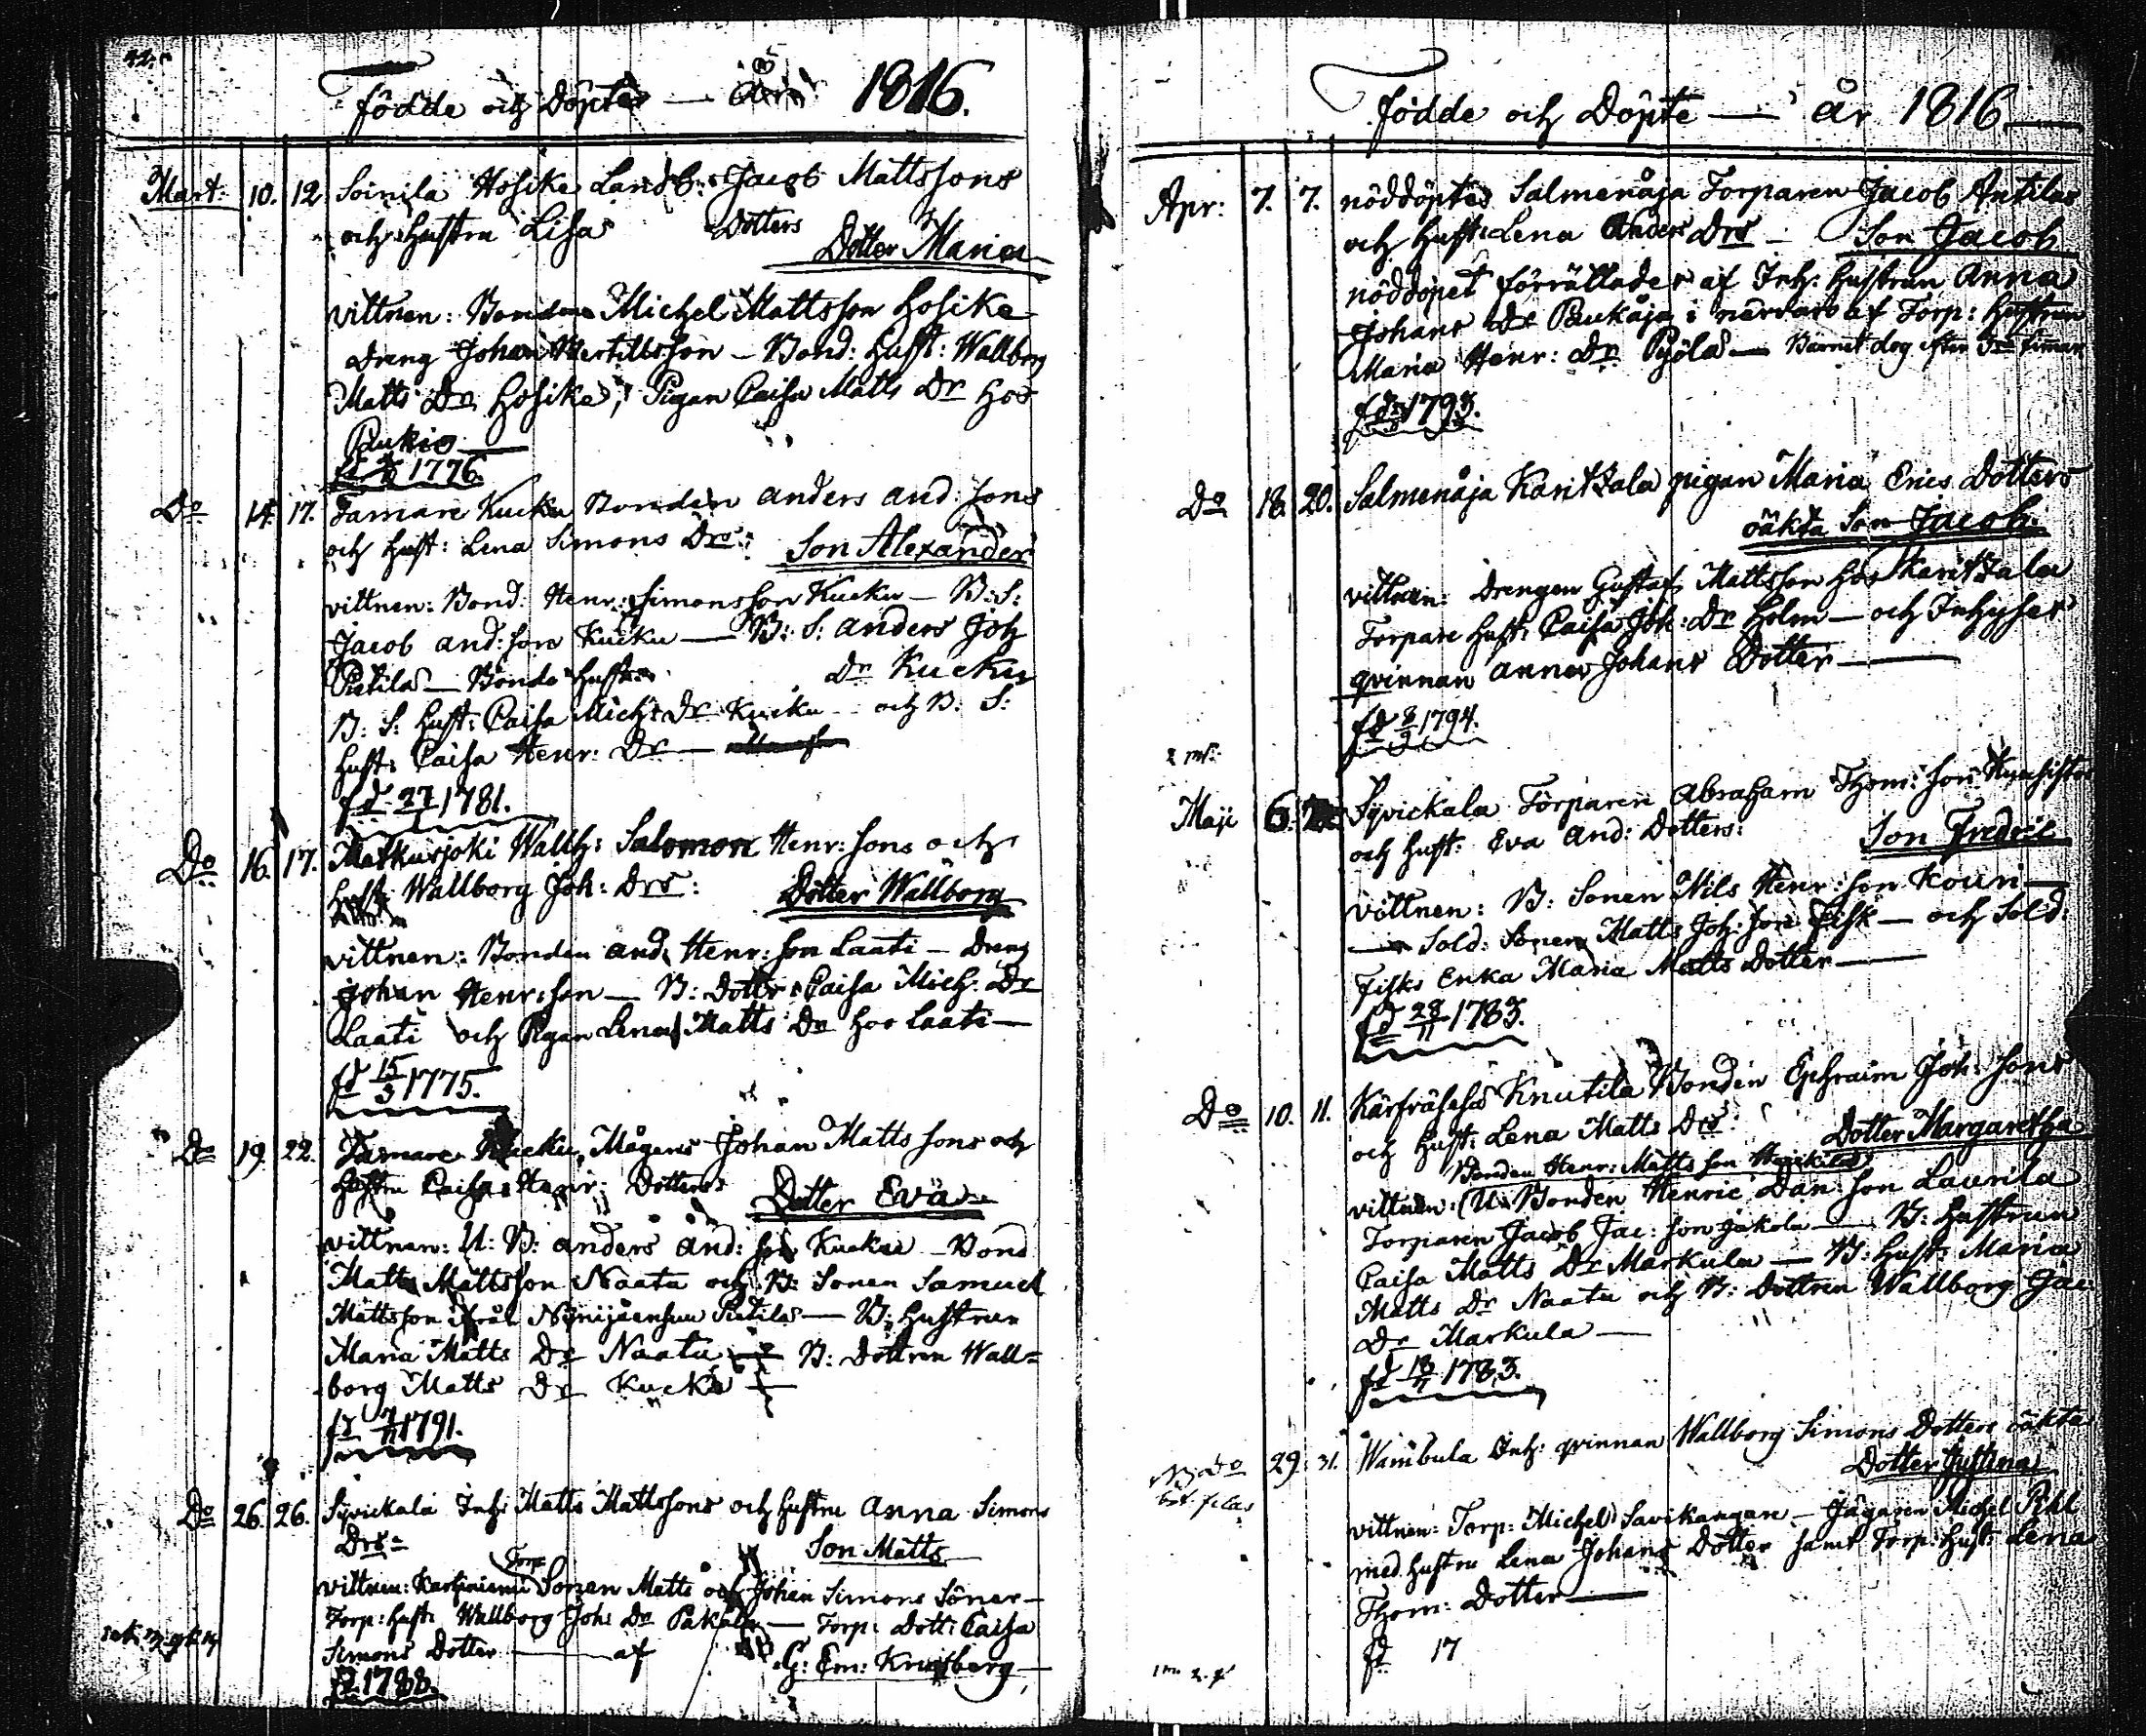 42.
Födde och Döpte — år 1816.
Mart: 10. 12. Soinila Hosike Landb: Jacob Mattssons
och hustru Lisas Dotters
Dotter Maria
vittnen: Bonden Michel Mattsson Hosike
dreng Johan Bertillsson — Bond: hust: Wallborg
Matts Dr Hosike, Pigan Caisa Matts Dr hos
Paukio —
fd 1776.
Do 14. 17. Tamare Kucku Bonden anders and: sons
och hust: Lena Simons Drs: Son Alexander
vittnen: Bond: Henr: Simonsson Kucku — B: S:
Jacob and: son Kucku — B: S: anders Joh
Pietila — Bonde hustr. Dr Kucku
B: S: hust: Caisa Mich: Dr Kucku — och B: S:
hust: Caisa Henr: Dr —
fd 27 1781.
Do 16. 17. Matkusjoki Wallh: Salomon Henr: sons och
hust: Wallborg Joh: Drs: Dotter Wallborg
vittnen: Bonden and: Henr: son Laati — Dreng
Johan Henr: son — B: Dottr: Caisa Mich: Dr
Laati och Pigan Lena Matts Dr hos Laati —
fd 15/3 1775.
Do 19. 22. Tamare Kucku, Mågens Johan Matts sons och
hustru Caisa Henr: Dotters Dotter Eva
vittnen: U: B: anders and: son Kucku — Bond
Matts Mattsson Naatu och B: Sonen Samuel
Mattsson ifrån Pietila — B: hustrun
Maria Matts Dr Naatu — B: Dottren Wall=
borg Matts Dr Kucku —
fd 1791.
Do 26. 26. Syvickala Inh: Matts Mattssons och hustru Anna Simons
Drs= Son Matts
Torp:
vittnen: Karhiniemi Sonen Matts och Johan Simons Söner —
Torp: hust: Wallborg Joh: Dr Pakala — Torp: Dott: Caisa
Simons Dotter — af G: Em: Kruskberg —
fd 1788.
Födde och Döpte — år 1816 —
Apr: 7. 7. nöddöptes Salmenåja Torparen Jacob Antilas
och hust: Lena Anders Drs — Son Jacob
nöddopet förrättades af Inh: hustrun Anna
Johans Dr Paukåja i närvaro af Torp: hustrun
Maria Henr: Dr Pyölä — Barnet dog efter timmar
fd 1793.
Do 18. 20. Salmenåja Karitzala pigan Maria Erics Dotters
oäkta Son Jacob
vittnen: Drengen Gustaf Mattsson hos Karitzala
Torpare hust: Caisa Joh: Dr Holm — och Inhyses
qvinnan anna Johans Dotter —
fd 8/9 1794.
Maji 6. Syvickala Torparen Abraham Thom: son
och hust: Eva And: Dotters: Son Fredric
vittnen: B: Sonen Nils Henr: son Kouri —
— Sold: Sonen Matts Joh: son Fisk — och Sold:
Fisks Enka Maria Matts Dotter —
fd 28/11 1783.
Do 10. 11. Kärfräsaha Knutila Bonden Ephraim Joh: Sons
och hust: Lena Matts Drs: Dotter Margaretha
Bonden Henr: Matts son
vittnen: (U: Bonden Henric Dan: son Laurila
Torparen Jacob Jac: son Jakola — B: hustrun
Caisa Matts Dr Markula — B: hust: Maria
Matts Dr Naatu och B: Dottren Wallborg Jac:
Dr Markula —
fd 18/11 1783.
Do 29. 31. Wambula Inh: qvinnan Wallborg Simons Dotters oäkta
Dotter Justina
vittnen: Torp: Michel Savikangare — Jägaren Michel Pihl
med hustru Lena Johans Dotter samt Torp: hust: Lena
Thom: Dotter —
fd 17